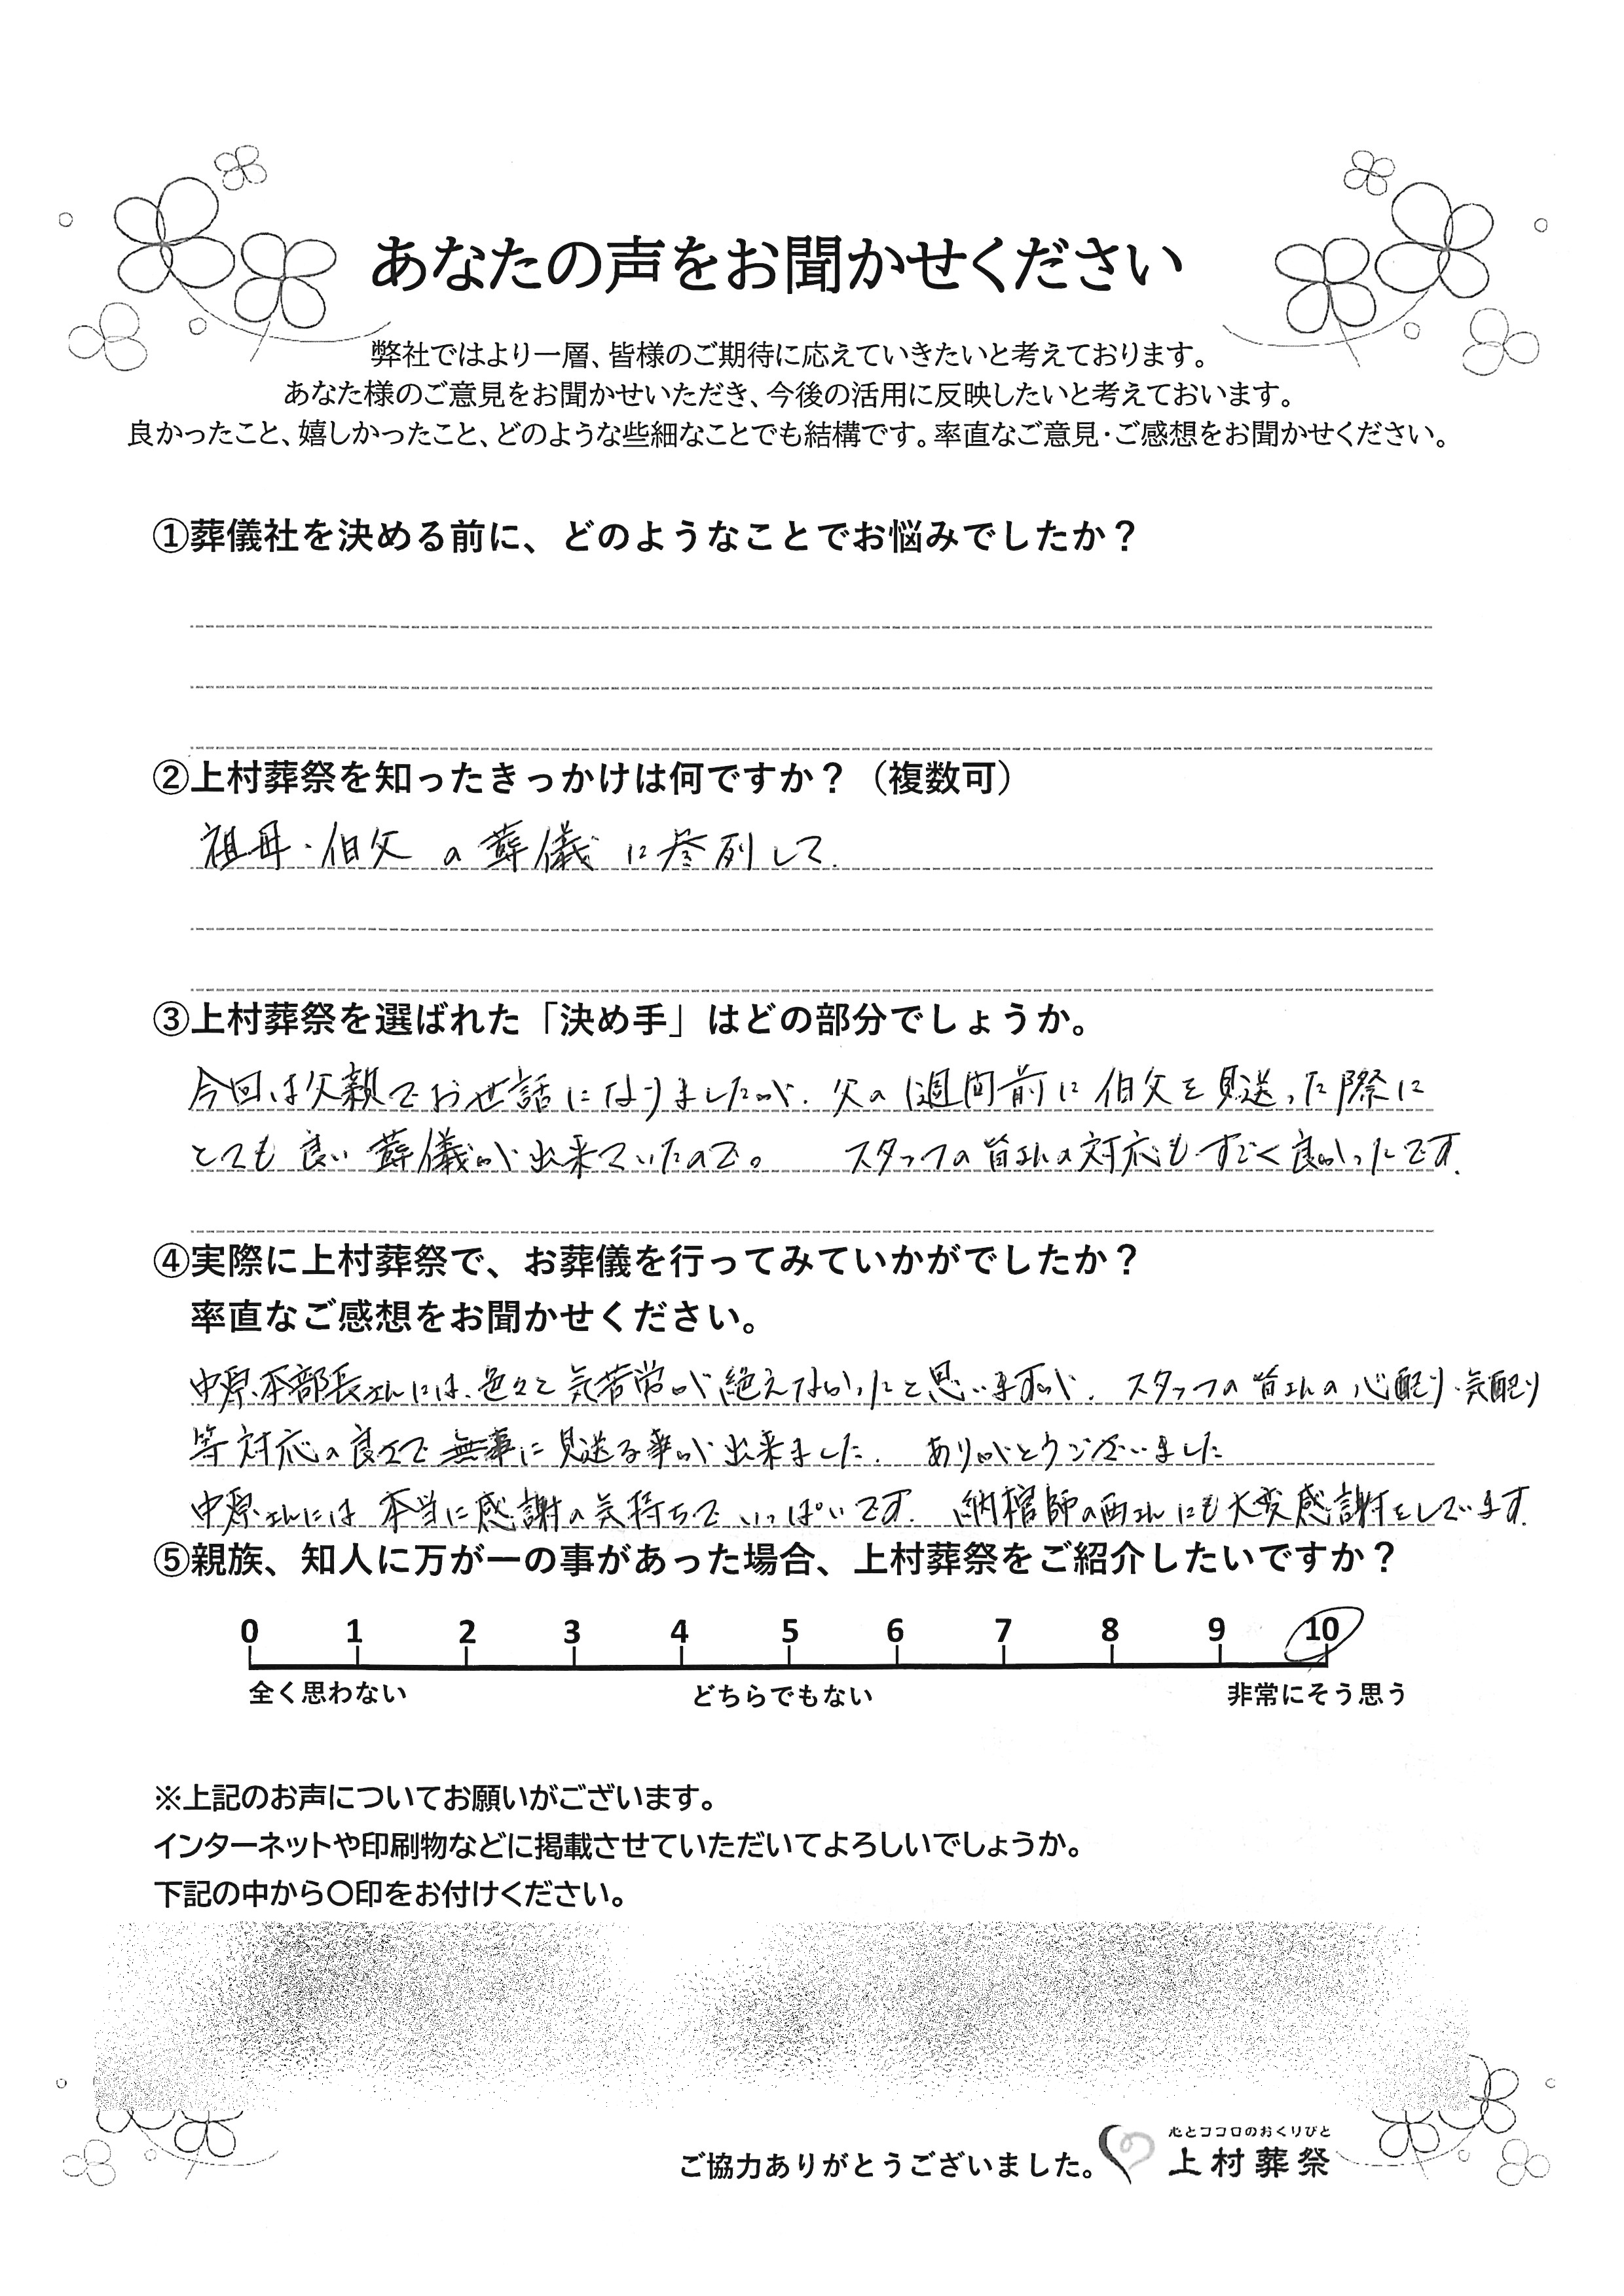 あなたの声をお聞かせください
弊社ではより一層、皆様のご期待に応えていきたいと考えております。
あなた様のご意見をお聞かせいただき、今後の活用に反映したいと考えておいます。
良かったこと、嬉しかったこと、どのような些細なことでも結構です。率直なご意見・ご感想をお聞かせください。
①葬儀社を決める前に、どのようなことでお悩みでしたか？
②上村葬祭を知ったきっかけは何ですか？（複数可）
祖母・伯父の葬儀に参列して.
③上村葬祭を選ばれた「決め手」はどの部分でしょうか。
今回は父親でお世話になりましたが、父の1週間前に伯父を見送った際に
とても良い葬儀が出来ていたので。 スタッフの皆さんの対応もすごく良かったです.
④実際に上村葬祭で、お葬儀を行ってみていかがでしたか？
率直なご感想をお聞かせください。
中原本部長さんには、色々と気苦労が絶えなかったと思いますが、スタッフの皆さんの心配り・気配り
等対応の良さで無事に見送る事が出来ました. ありがとうございました
中原さんには本当に感謝の気持ちでいっぱいです. 納棺師の西さんにも大変感謝をしています.
⑤親族、知人に万が一の事があった場合、上村葬祭をご紹介したいですか？
0 1 2 3 4 5 6 7 8 9 10
全く思わない どちらでもない 非常にそう思う
※上記のお声についてお願いがございます。
インターネットや印刷物などに掲載させていただいてよろしいでしょうか。
下記の中から〇印をお付けください。
心とココロのおくりびと
ご協力ありがとうございました。 上村葬祭